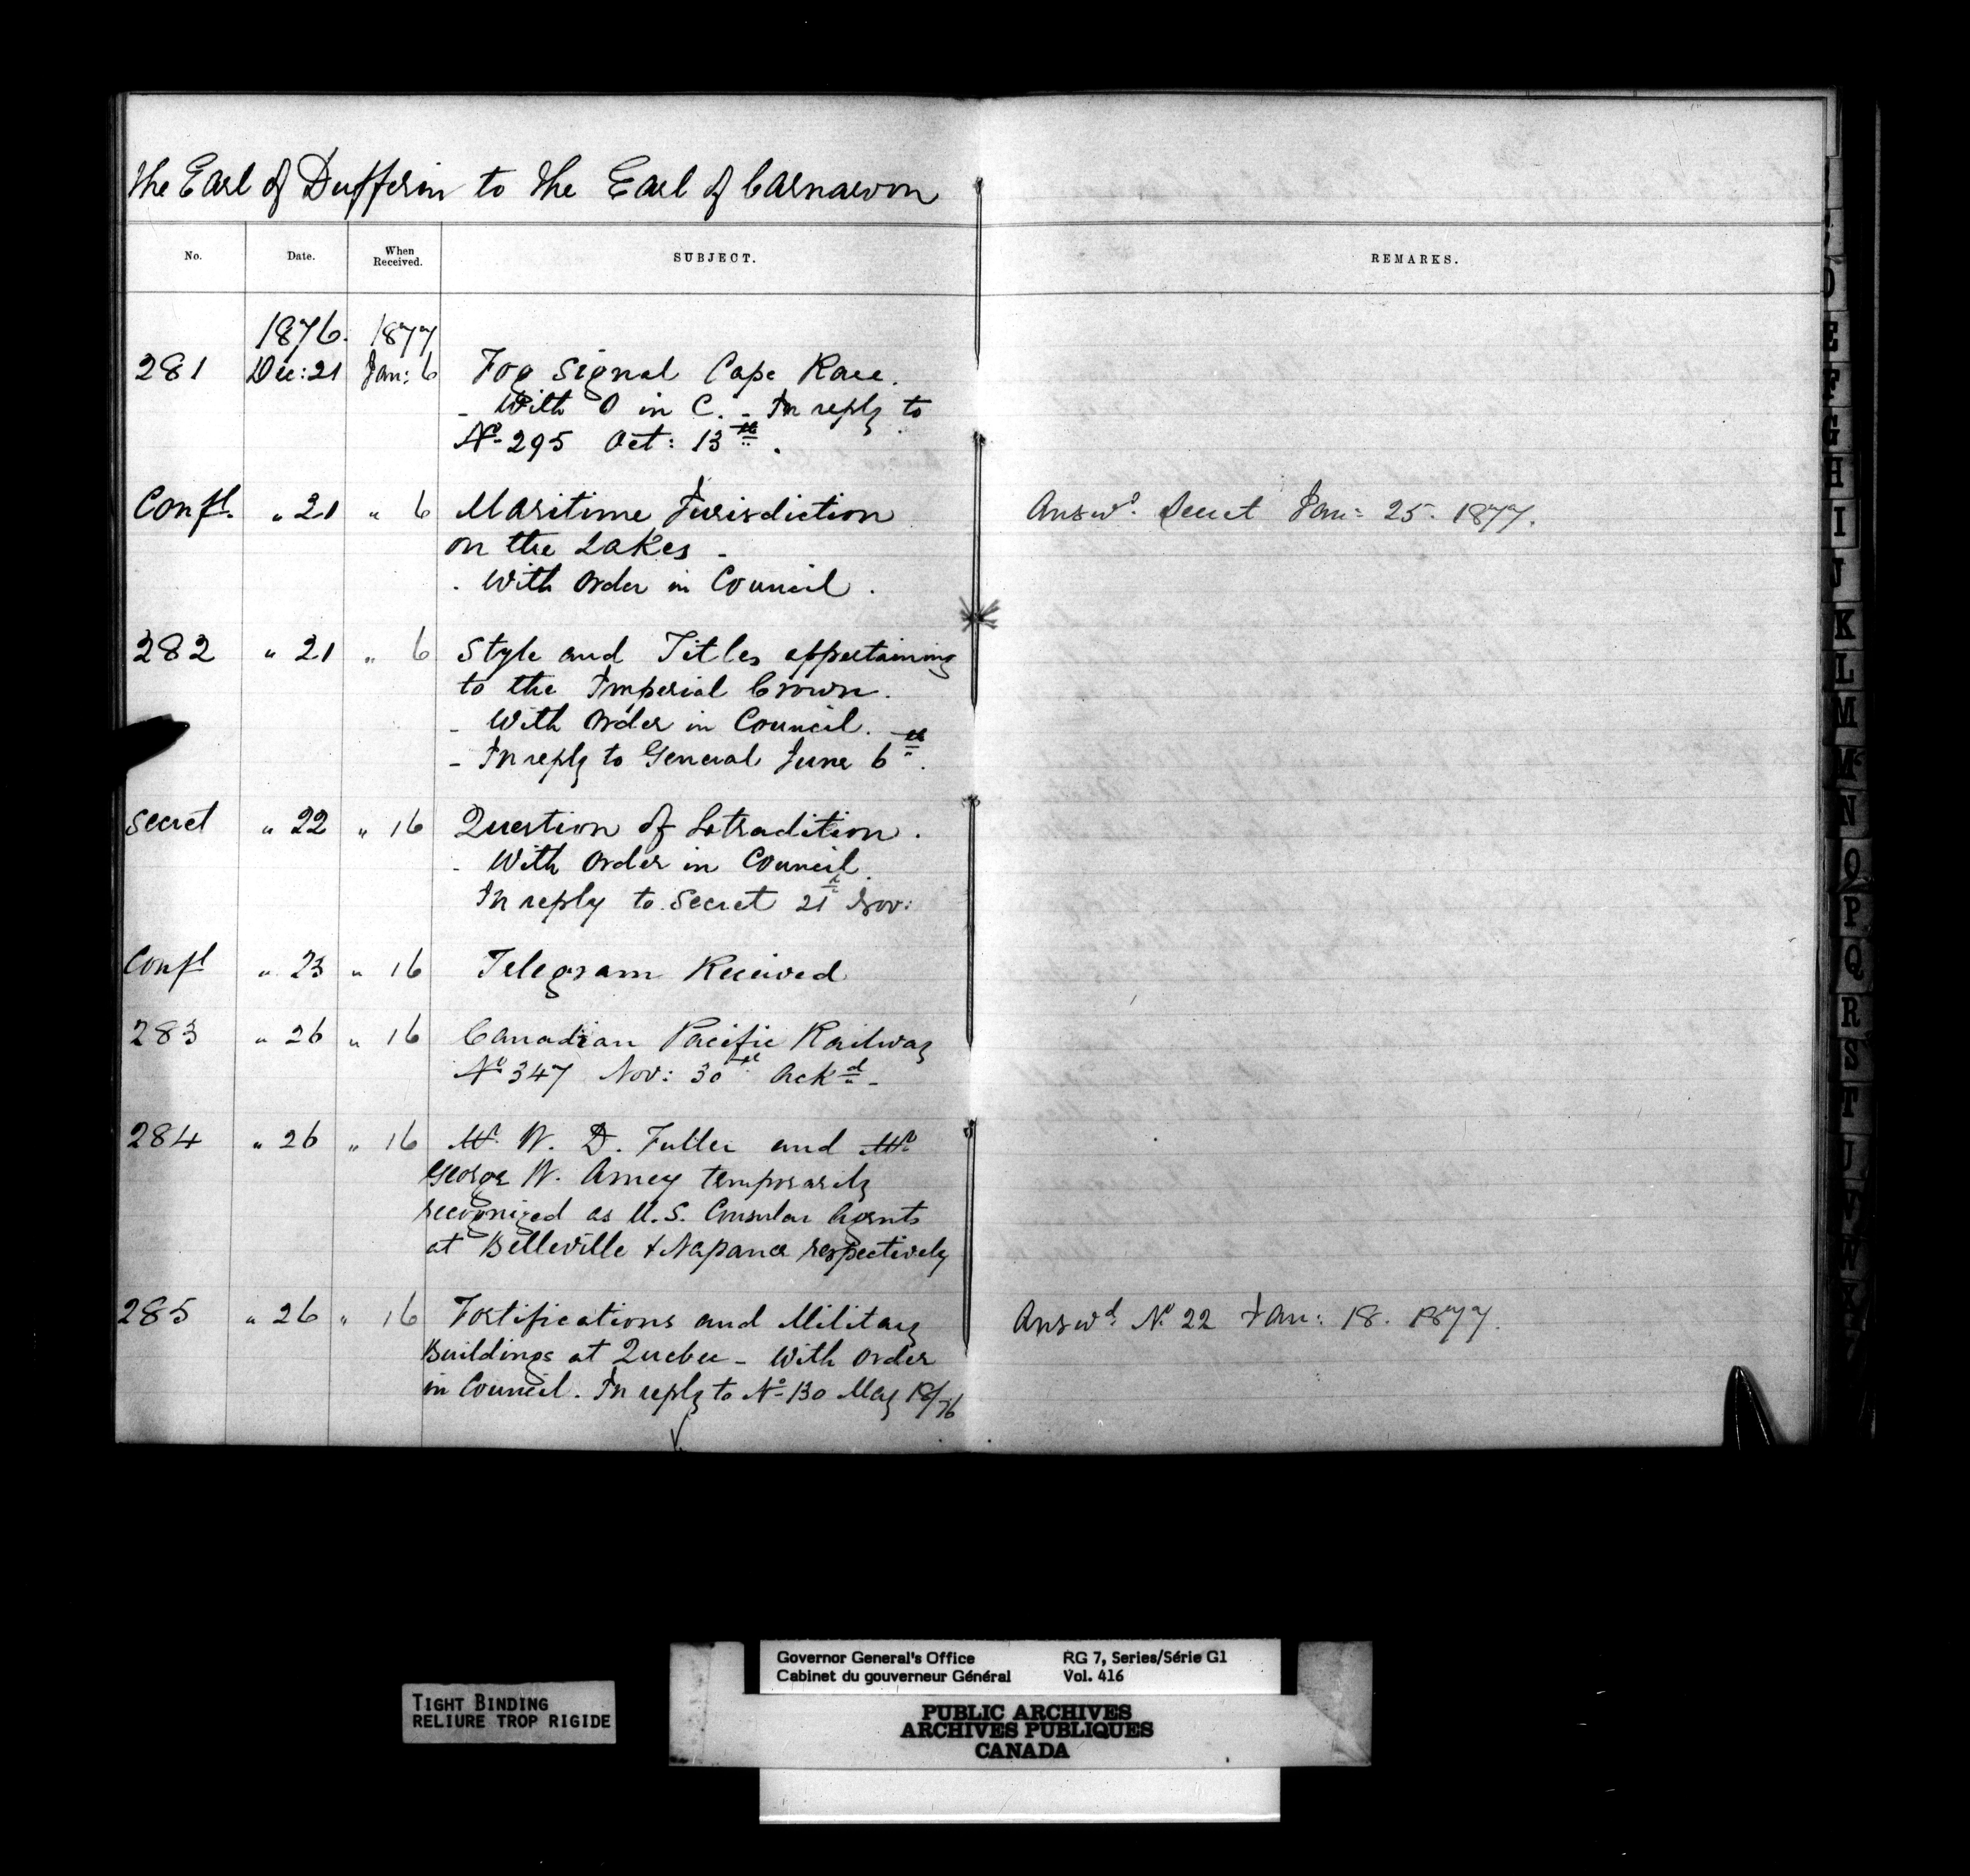 The Earl of Dufferin to the Earl of Carnarvon
No. Date. When Received. SUBJECT. REMARKS.
1876. 1877
281 Dec: 21 Jan: 6 Fog Signal Cape Race.
- With O in C. - In reply to
No 295 Oct: 13th.
Confl. " 21 " 6 Maritime Jurisdiction Answd. Secret Jan: 25. 1877.
on the Lakes -
- With Order in Council.
282 " 21 " 6 Style and Titles appertaining
to the Imperial Crown.
- With Order in Council.
- In reply to General June 6th.
Secret " 22 " 16 Question of Extradition.
- With Order in Council.
In reply to Secret 21st Nov:
Confl " 23 " 16 Telegram Received
283 " 26 " 16 Canadian Pacific Railway
No 347 Nov: 30th Ackd -
284 " 26 " 16 Mr. W. D. Fuller and Mr
George W. Amey temporarily
recognized as U.S. Consular Agents
at Belleville & Napanee respectively
285 " 26 " 16 Fortifications and Military Answd. No 22 Jan: 18. 1877.
Buildings at Quebec - With Order
in Council. In reply to No 130 May 18/76
D
E
F
G
H
I
J
K
L
M
Mc
N
O
P
Q
R
S
T
U
Governor General's Office RG 7, Series/Série G1
Cabinet du gouverneur Général Vol. 416
TIGHT BINDING
RELIURE TROP RIGIDE
PUBLIC ARCHIVES
ARCHIVES PUBLIQUES
CANADA